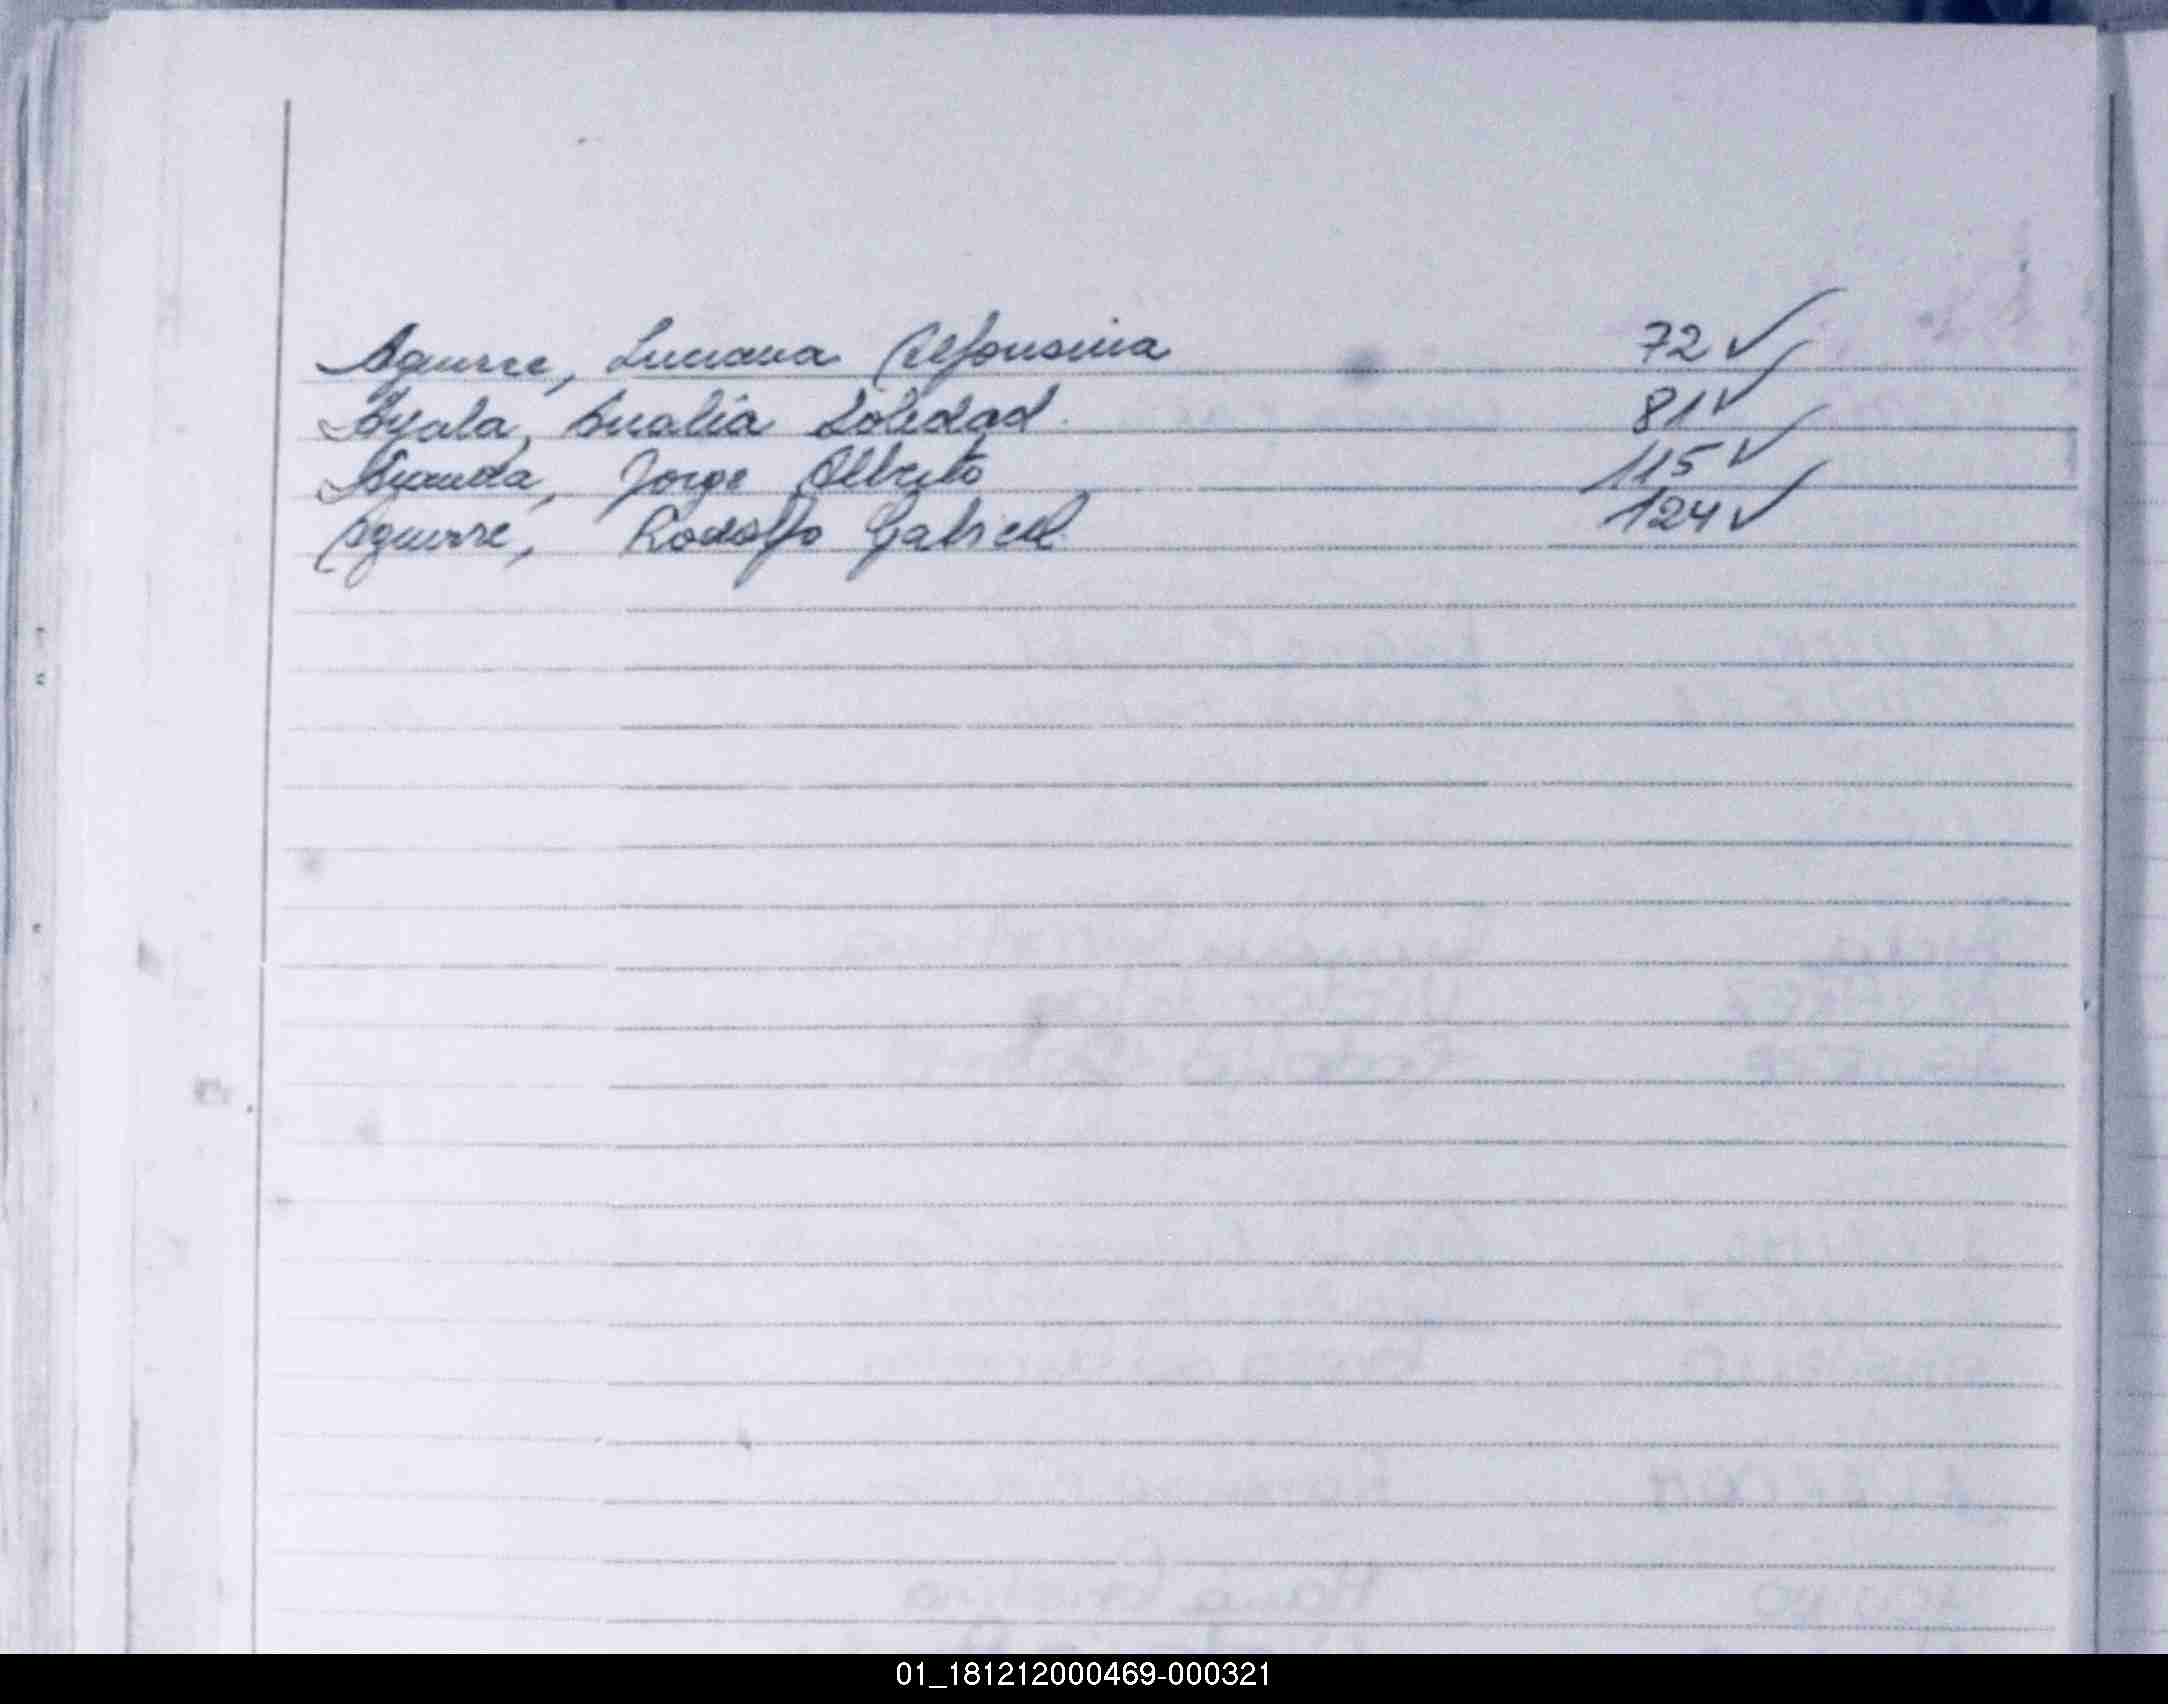 Aguirre, Luciana Alfonsina 72 ✓
Ayala, Analia Soledad. 81 ✓
Aranda, Jorge Alberto 115 ✓
Aguirre, Rodolfo Gabriel 124 ✓
01_181212000469-000321